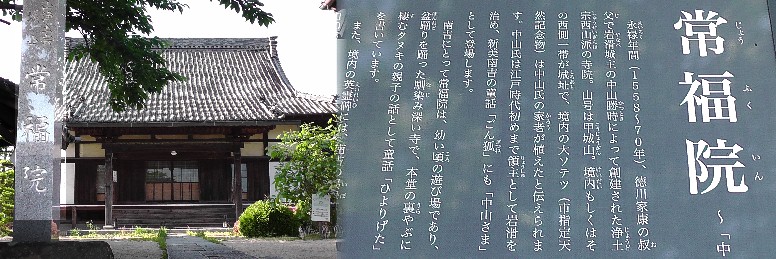 常福院
常福院
じょう ふく いん
～「中
永禄年間(1558～70年)、徳川家康の叔
父で岩滑城主の中山勝時によって創建された浄土
宗西山派の寺院。山号は中城山。境内もしくはそ
の西側一帯が城址で、境内の大ソテツ(市指定天
然記念物)は中山氏の家老が植えたと伝えられま
す。中山氏は江戸時代初めまで領主として岩滑を
治め、新美南吉の童話「ごん狐」にも「中山さま」
として登場します。
南吉にとって常福院は、幼い頃の遊び場であり、
盆踊りを踊った馴染み深い寺で、本堂の裏やぶに
棲むタヌキの親子の話として童話「ひよりげた」
を書いています。
また、境内の英霊碑には、南吉の